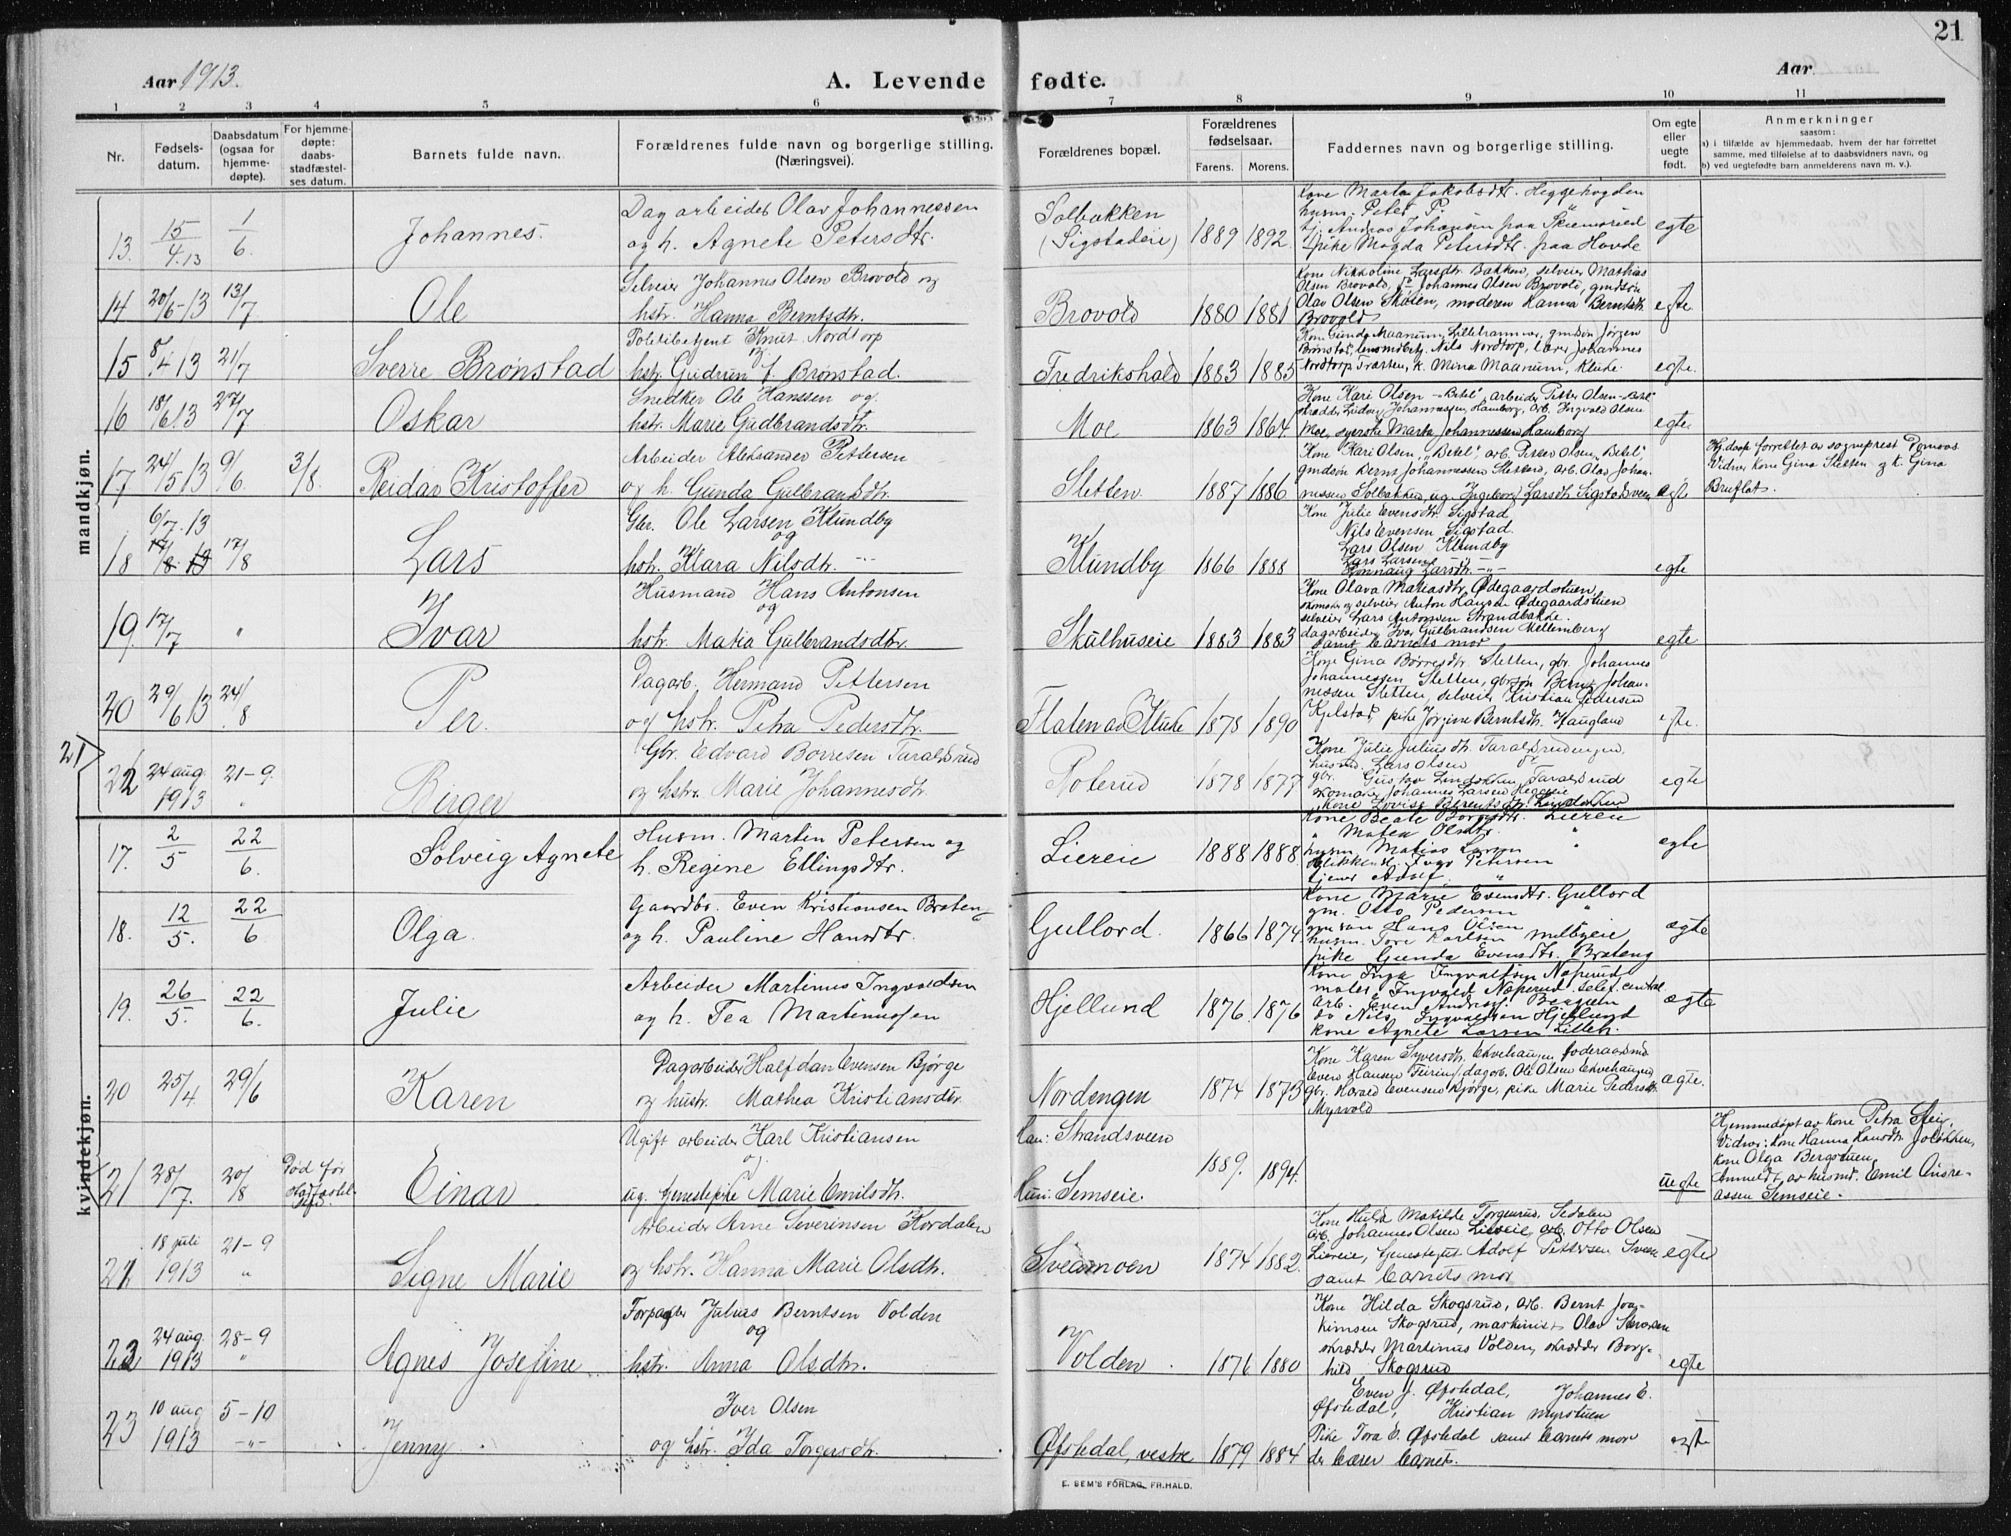 21
Aar 1913.
A. Levende fødte.
Aar
1 2 3 4 5 6 7 8 9 10 11
Nr.
Fødsels-
datum.
Daabsdatum
(ogsaa for
hjemme-
døpte).
For hjemme-
døpte:
daabs-
stadfæstel-
ses datum.
Barnets fulde navn.
Forældrenes fulde navn og borgerlige stilling.
(Næringsvei).
Forældrenes bopæl.
Forældrenes
fødselsaar.
Farens. Morens.
Faddernes navn og borgerlige stilling.
Om egte
eller
uegte
født.
Anmerkninger
saasom:
a) i tilfælde av hjemmedaab, hvem der har forrettet
samme, med tilføielse af to daabsvidners navn, og
b) ved uegtefødte barn anmelderens navn m. v.).
mandkjøn.
13. 15/4.13 1/6 Johannes.
Dagarbeider Olav Johannessen
og h. Agnete Petersdtr.
Solbakken
(Sigstadeie)
1889 1892
Kone Marta Jakobsdtr. Heggehaugen
husm. Peter P.
tj. Andreas Johansen paa
pike Magda Petersdtr. paa Hovde
egte
14 20/6-13 13/7 Ole
Selveier Johannes Olsen Brovold og
hstr. Hanna Berntsdtr.
Brovold 1880 1881
Kone Nikoline Larsdtr. Bakken, selveier Mathias
Olsen Brovold, do Johannes Olsen Brovold, gmdsøn
Olav Olsen Skøien, moderen Hanna Berntsdtr.
Brovold
egte
15 8/4 13 21/7 Sverre Brønstad
Politibetjent Knut Nordtorp
og
hstr. Gudrun f. Brønstad.
Fredrikshald 1883 1885
Kone Gunda Maarum, Lillehammer, gmdsøn Jørgen
Brønstad, lensmdbetj. Nils Nordtorp, lærer Johannes
Nordtorp Trøsten, k. Mina Maarum, Klude
egte.
16 18/6 13 27/7 Oskar
Snedker Ole Hanssen og
hstr. Marie Gudbrandsdtr.
Moe 1863 1864
Kone Kari Olsen "Betel", arbeider Petter Olsen "Betel"
skrædder Ludvig Johannessen, Hamborg, arb. Ingvald Olsen
Moe, syerske Marta Johannessen Hamborg
egte
17 24/5 13 9/6 3/8. Reidar Kristoffer
Arbeider Aleksander Pettersen
og h. Gunda Gulbrandsdtr.
Sletten 1887 1886
Kone Kari Olsen, "Betel", arb. Petter Olsen "Betel",
gmdsøn Bernt Johannessen Sletten, arb. Olav Johan-
nessen Solbakken, ug. Ingeborg Larsdtr. Sigstadsveen
egte
Hj.døpt forrettet av sogneprest
Vidner kone Gina Sletten og k. Gina
Bruflot.
6/7. 13
18 17/8 13 17/8 Lars
Gbr. Ole Larsen Klundby
og
hstr. Klara Nilsdtr. -"-
Klundby 1866 1888
Kone Julie Evensdtr. Sigstad
Nils Evensen Sigstad
Lars Olsen Klundby
Lars Larsen "
Rønnaug Larsdtr. -"-
egte
19. 17/7 " Ivar
Husmand Hans Antonsen
og
hstr. Matia Gulbrandsdtr.
Skulhuseie 1883 1883
Kone Olava Matiasdtr. Ødegaardstuen,
skomaker og selveier Anton Hansen Ødegaardstuen
selveier Lars Antonssen Strandbakke.
dagarbeider Ivar Gulbrandsen Mellemberg
samt barnets mor
egte
20 29/6 13 24/8 Per.
Dagarb. Hermand Pettersen
og hstr. Petra Pedersdtr.
Flaten av Klude 1878 1890
Kone Gina Børresdtr. Sletten, gbr. Johannes
Johannessen Sletten, gbrsøn Bernt Johan-
nessen Sletten, selveier Kristian Pedersen
Kjelstad, pike Jørgine Berntsdtr. Haugland
egte.
21>
22 24 aug. 1913 21-9. " Birger
Gbr. Edvard Børresen Taraldsrud
og hstr. Marie Johannesdtr.
Poterud 1878 1877
Kone Julie Juliusdtr. Taraldsrudengen
husmd. Lars Olsen do
gbr. Gustav Lindokken, Taraldsrud
Johannes Larsen Heggeeie
Kone Lovise Berentsdtr. Lindokken
egte
kvindekjøn.
17. 2/5 22/6. Solveig Agnete
Husm. Martin Petersen og
h. Regine Ellingsdtr.
Liereie 1888 1888
Kone Beate Børresdtr. Liereie
" Matea Olsdtr. "
husm. Matias Larsen "
Blikkensl. Ivar Petersen
tjener Adolf "
egte
18. 12/5. 22/6 Olga.
Gaardbr. Even Kristiansen Braten
og h. Pauline Hansdtr.
Gullord. 1866 1874
Kone Marie Evensdtr. Gullord
gm. Otto Pedersen "
gmsøn Hans Olsen
husm. Tore Karlsen Melbyeie
pike Gunda Evensdtr. Brateng
egte
19. 26/5. 22/6. Julie
Arbeider Martinus Ingvaldsen
og h. Tea Martinussen
Hjellund 1876 1876
Kone Inga Ingvaldsen Naperud
maler Ingvald Naperud telef. central
arb. Even Andreas. Bergseter
do Nils Ingvaldsen Hjellund
kone Agnete Larsen Lilleh.
egte
20 25/4 29/6 Karen
Dagarbeider Halfdan Evensen Bjørge
og hustr. Mathea Kristiansdtr.
Nordengen 1874 1873
Kone Karen Syversdtr. Ekvehaugen, føderaadsmd
Even Hansen Feiring, dagarb. Ole Olsen Ekvehaugen
gbr. Harald Evensen Bjørge, pike Marie Pedersdtr.
Myrvold
egte.
21 28/7. 20/8 Død før
stadfæstel-
sen. Einar
Ugift arbeider Karl Kristiansen
og
ug. tjenestepike Marie Emilsdtr.
Han: Strandsveen
Hun: Semseie.
1889. 1894.
uegte
Hjemmedøpt av kone Petra Slei,
Vidner: Kone Hanna Hansdtr.
Kone Olga Bergstuen
Anmeldt av husmd. Emil Andre-
assen Semseie.
21 18 juli 1913 21-9 " Signe Marie
Arbeider Arne Severinsen Kordalen
og hstr. Hanna Marie Olsdtr.
Sveamoen 1874 1882
Kone Hulda Matilde Torgersrud, Sedalen
Arb. Johannes Olsen Liereie, arb. Otto Olsen
Liereie, tjenestegut Adolf Pettersen Sveen
samt barnets mor
egte
22 24 aug. 1913 28-9 " Agnes Josefine
Forpagter Julius Berntsen Volden
og
hstr. Anna Olsdtr.
Volden. 1876 1880
Kone Hilda Skogsrud, arb. Bernt Joa-
kimsen Skogsrud, maskinist Olav Skogsrud
skrædder Martinus Volden, skrædder Borg-
hild Skogsrud
egte
23 10 aug 1913 5-10 -"- Jenny
Iver Olsen
og hstr. Ida Torgersdtr.
Øfstedal, vestre 1879 1884
Even J. Øfstedal, Johannes E.
Øfstedal, Kristian Myrstuen
Pike Tora E. Øfstedal samt barnets mor
der bærer barnet.
egte
E. SEM'S FORLAG, FR.HALD.